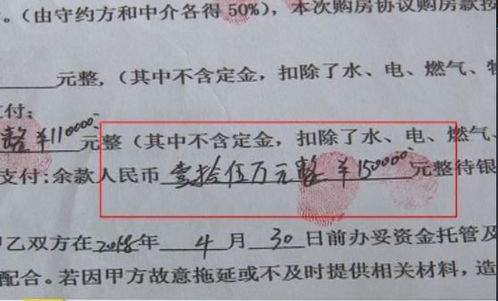 。(由守约方和中介各得50%)，本次购房协议购房款按
元整，(其中不含定金，扣除了水、电、燃气、物
支付：
整 ¥110000 元整（其中不含定金，扣除了水、电、燃气、
支付：余款人民币 壹拾伍万元整 ¥150000 元整待银
甲乙双方在2018年 4 月 30 日前办妥资金托管及
配合。若因甲方故意拖延或不及时提供相关材料，造